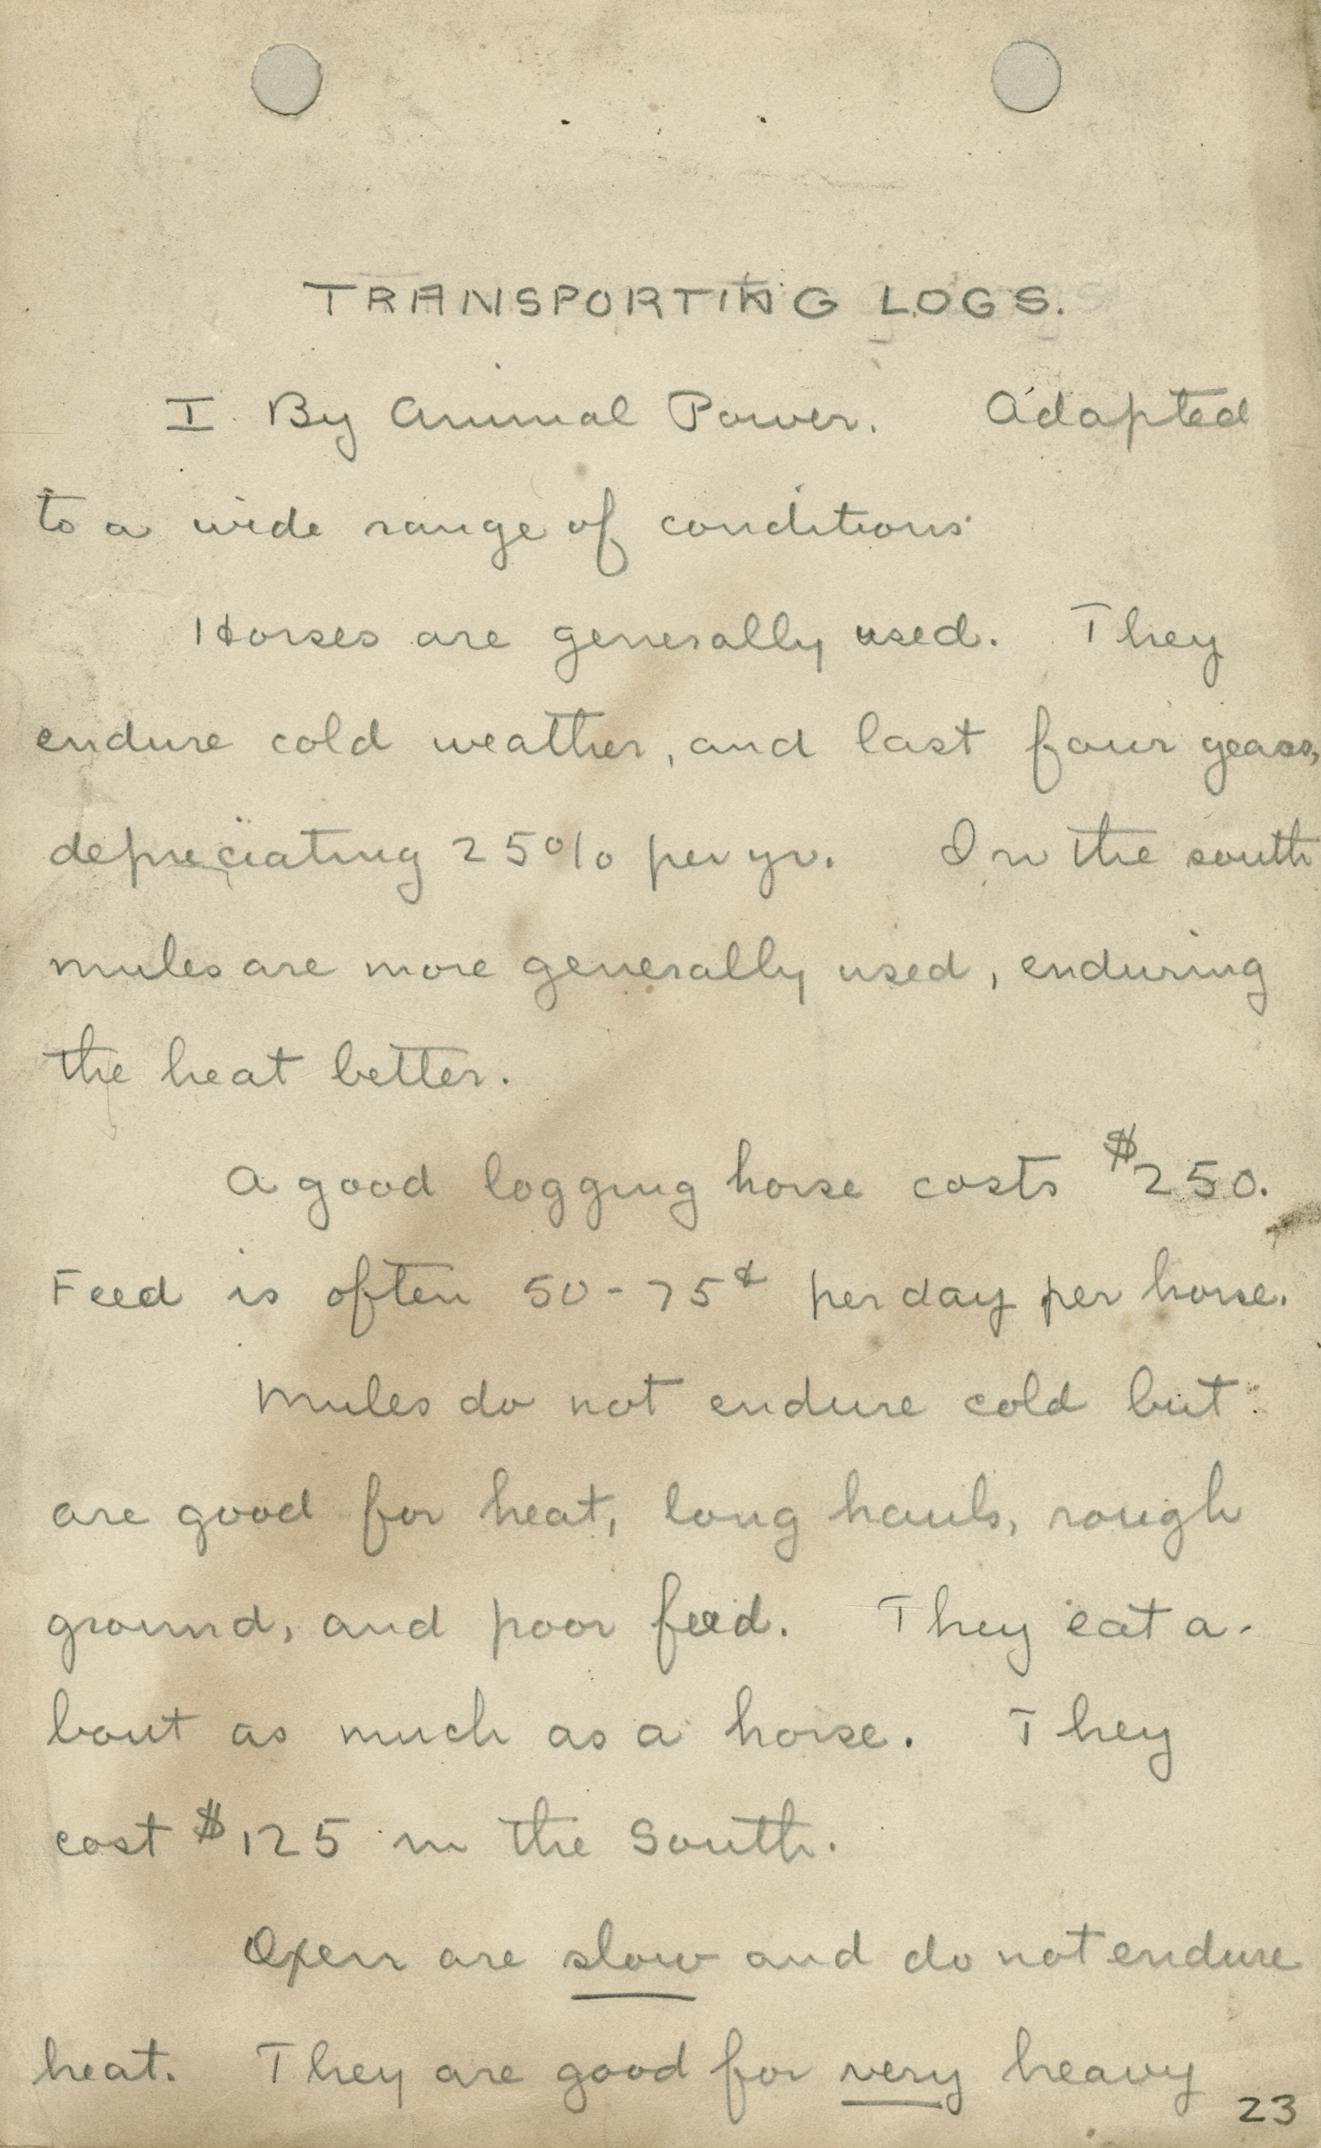 TRANSPORTING LOGS.
I By Animal Power. Adapted
to a wide range of conditions
Horses are generally used. They
endure cold weather, and last four years,
depreciating 25% per yr. In the south
mules are more generally used, enduring
the heat better.
A good logging horse costs $250.
Feed is often 50-75¢ per day per horse.
Mules do not endure cold but
are good for heat, long hauls, rough
ground, and poor feed. They eat a-
bout as much as a horse. They
cost $125 in the South.
Oxen are slow and do not endure
heat. They are good for very heavy
23